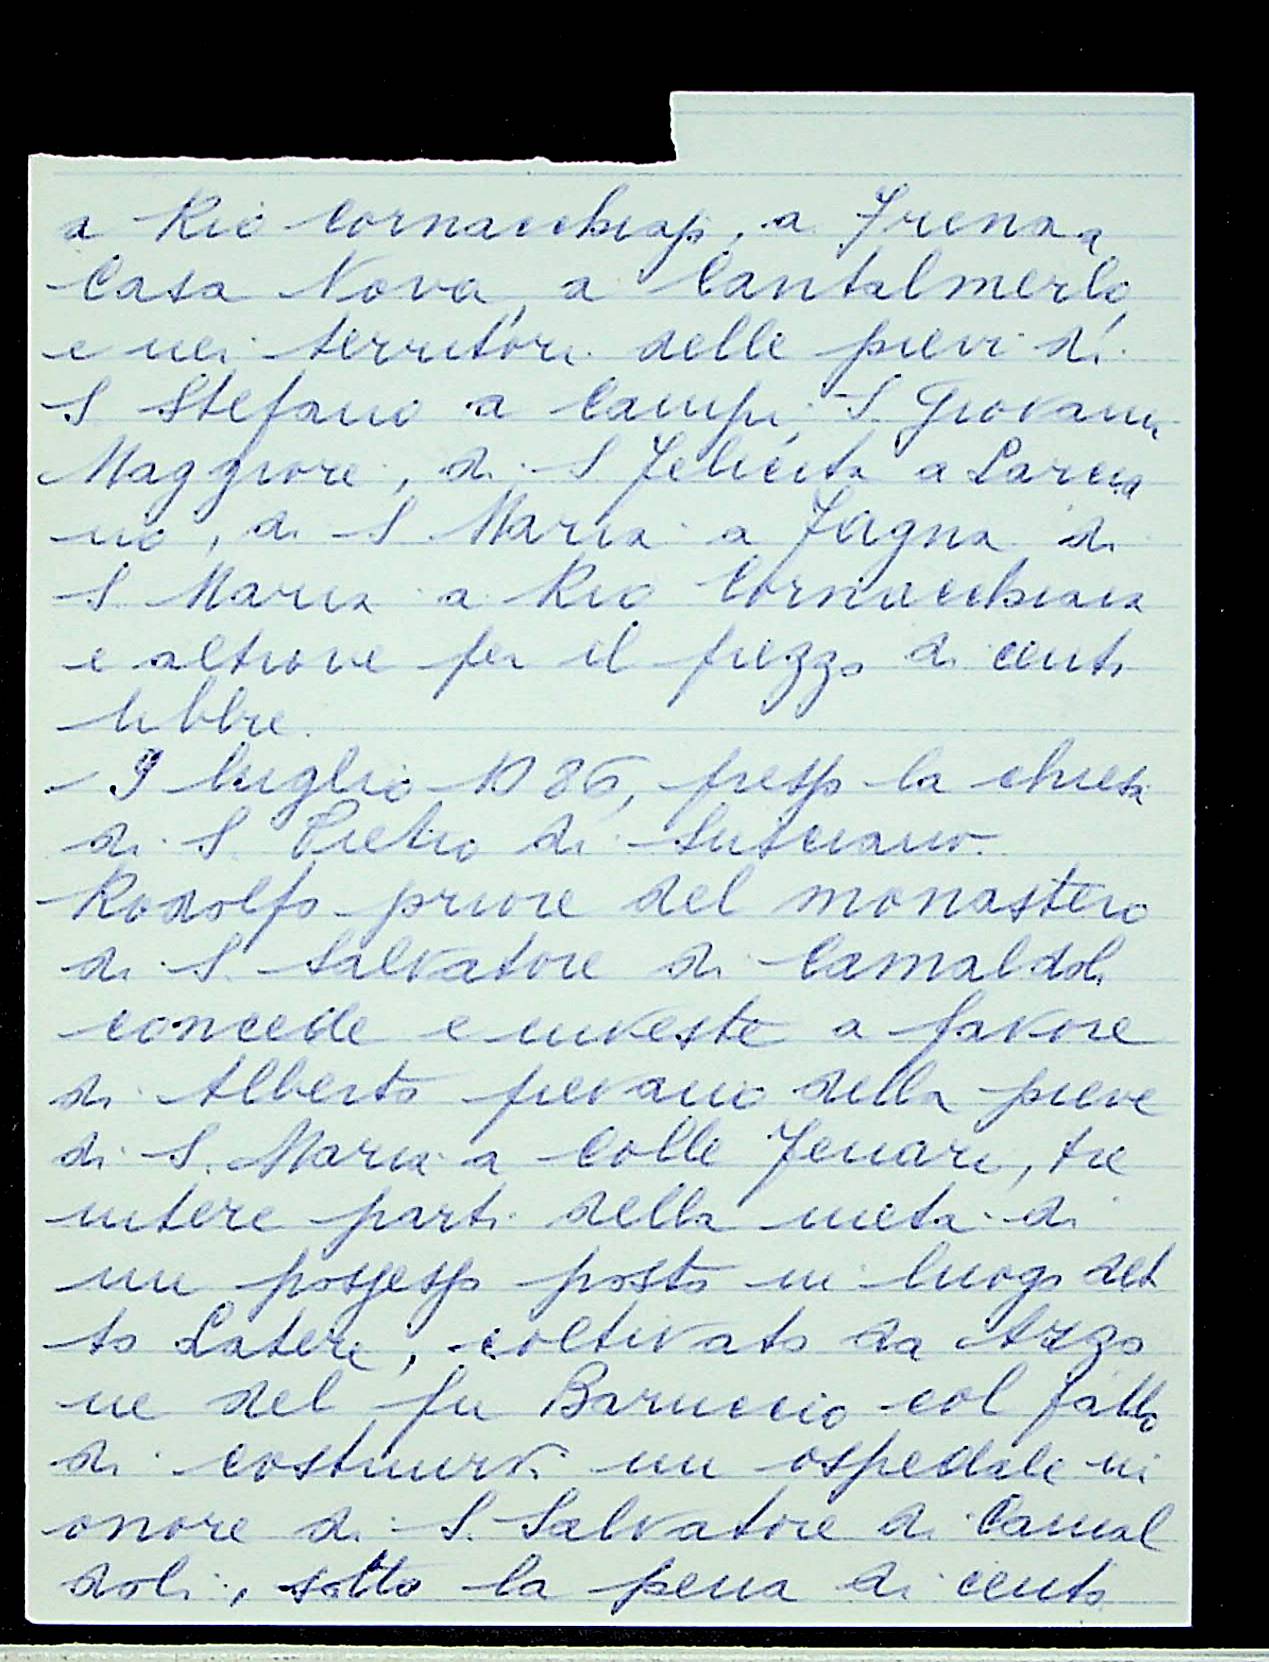 a Rio Cornacchiajo, a Frena a
Casa Nova, a Cantalmerlo,
e nei territori delle pievi di
S Stefano a Campi, S Giovanni
Maggiore, di S Felicita a Larcia
no, di S Maria a Fagna di
S Maria a Rio Cornacchiaia
e altrove per il prezzo di cento
libbre.
- 9 luglio 1086, presso la chiesa
di S Pietro di Luterano.
Rodolfo priore del monastero
di S. Salvatore di Camaldoli
concede e investe a favore
di Alberto pievano della pieve
di S. Maria a Colle Fenari, tre
intere parti della meta di
un possesso posto in luogo det
to Latere, coltivato da Azzo
ne del fu Baruccio col patto
di costruirvi un ospedale in
onore di S. Salvatore di Camal
doli, sotto la pena di cento